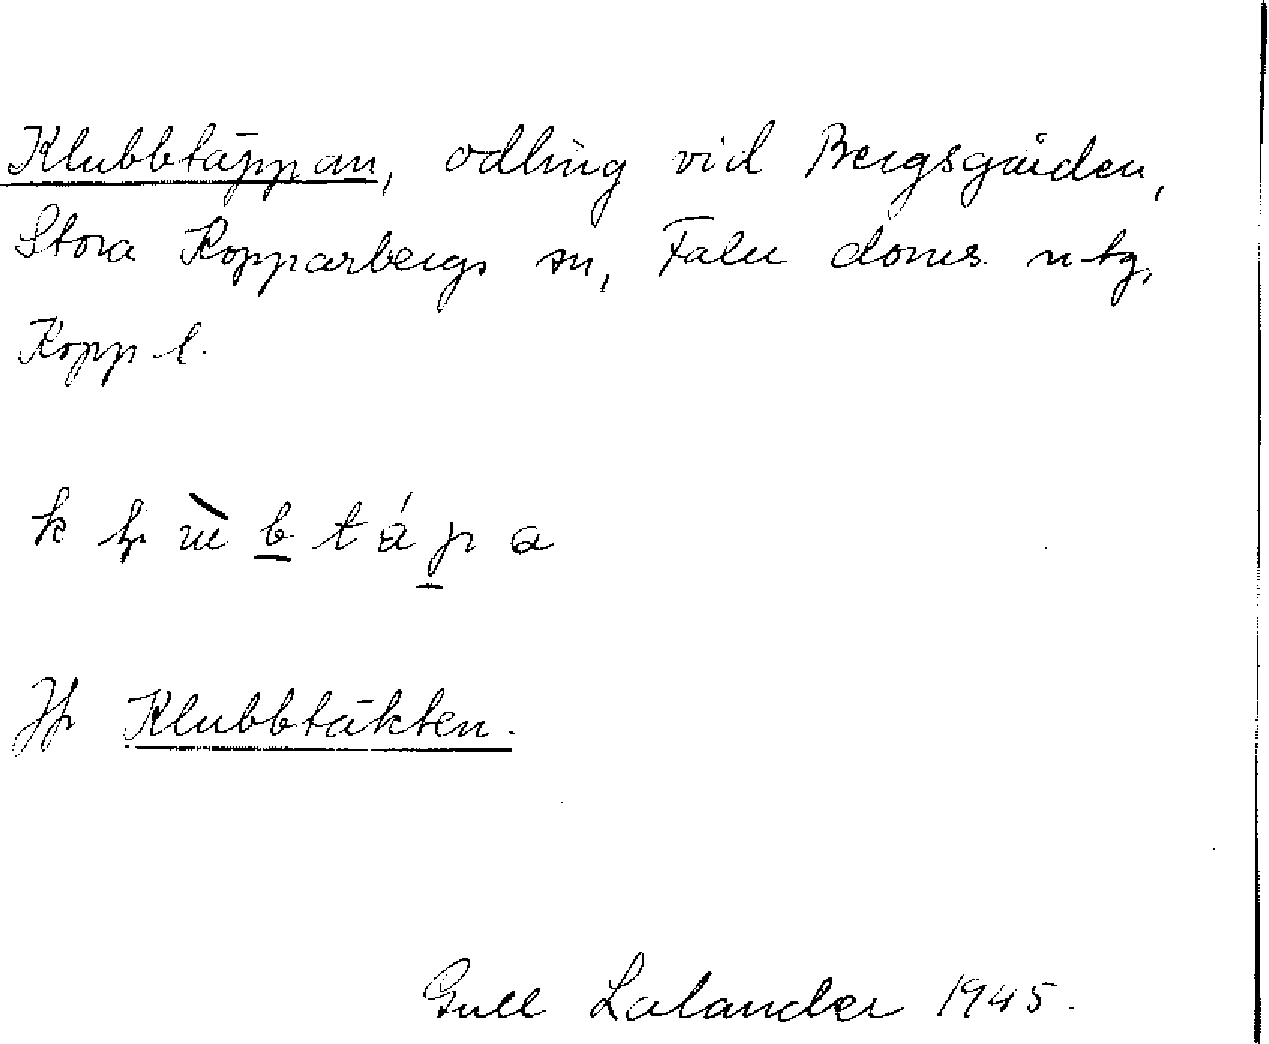 Klubbtäppan, odling vid Bergsgården,
Stora Kopparbergs sn, Falu doms. ntg,
Kopp l.
Jfr Klubbtäkten.
Gull Lalander 1945.